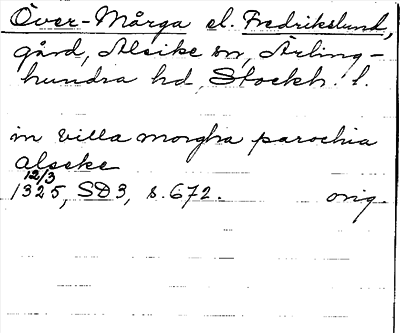 Över-Mårga el. Fredrikslund,
gård, Alsike sn, Ärling-
hundra hd, Stockh. l.
in villa morgha parochia
alseke
12/3
1325, SD3, s. 672. orig.